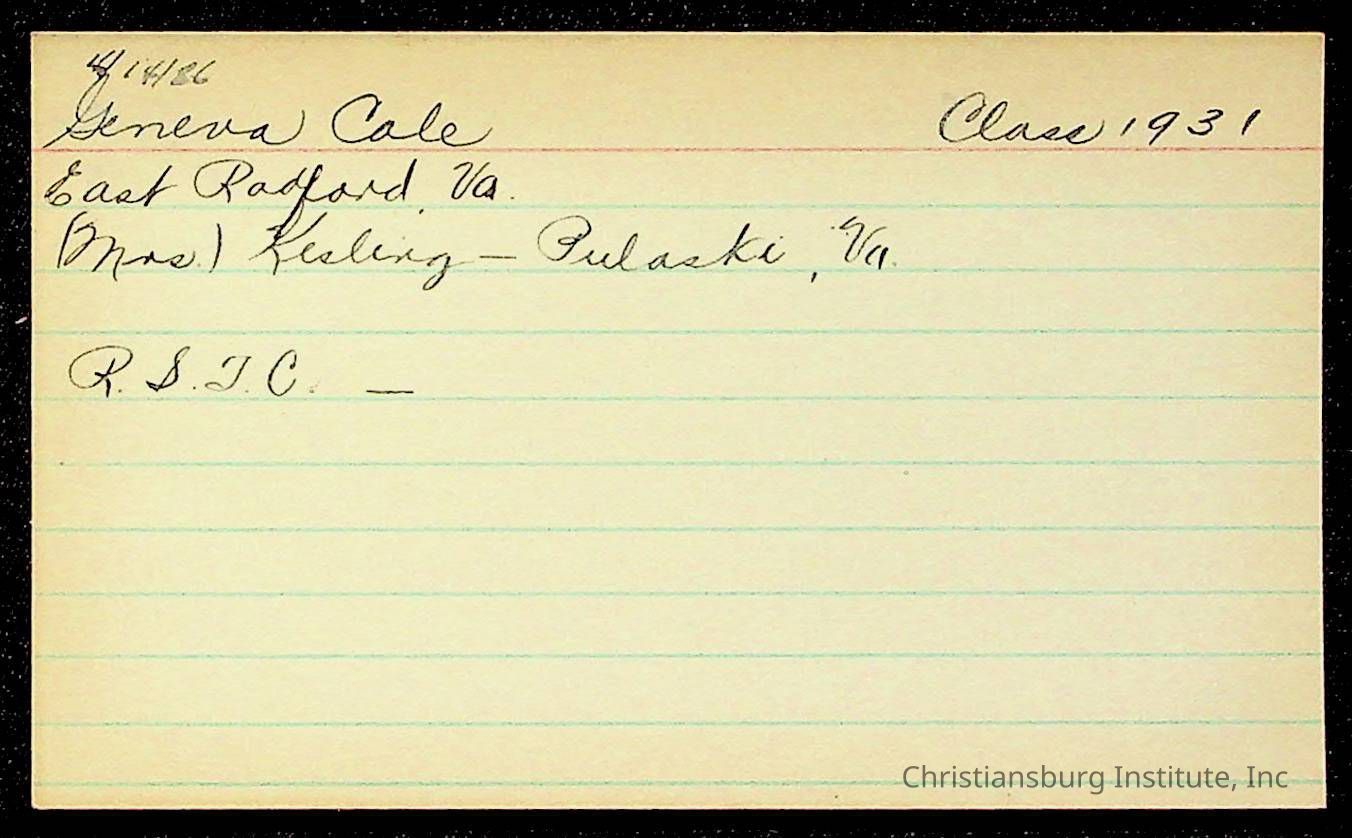 Geneva Cole Class 1931
East Radford, Va.
(Mrs.) Kesling — Pulaski, Va.
R. S. T. C. —
Christiansburg Institute, Inc